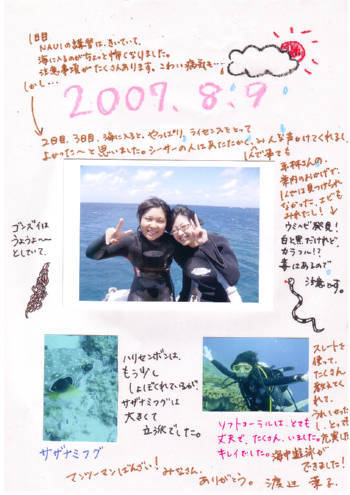 1日目
NAUIの講習は、きいていて、
海に入るのがちょっと怖くなりました。
注意事項がたくさんあります。こわい病気も…
しかし…
2007.8.9
2日目、3日目、海に入ると、やっぱり、ライセンスをとって
よかった〜と思いました。シーサーの人は
みんな声かけてくれるし、
案内のおかげで、
1人では見つけられ
なかった、
みれたし!
ウミヘビ発見!
白と黒だけれど、
カラフル!?
毒はあるので
注意です。
ゴンズイは
うようよ〜
としていて、
ハリセンボンは、
もう少し
しょぼくれているが、
サザナミフグは
大きくて
立派でした。
サザナミフグ
ソフトコーラルは、とても
丈夫で、たくさん、いました。
キレイでした。
スレートを
使って、
たくさん
教えてく
れて、
うれしかった
し、とっても
充実した
海中遊泳が
できました!
マンツーマンばんざい! みなさん、
ありがとう。 渡辺